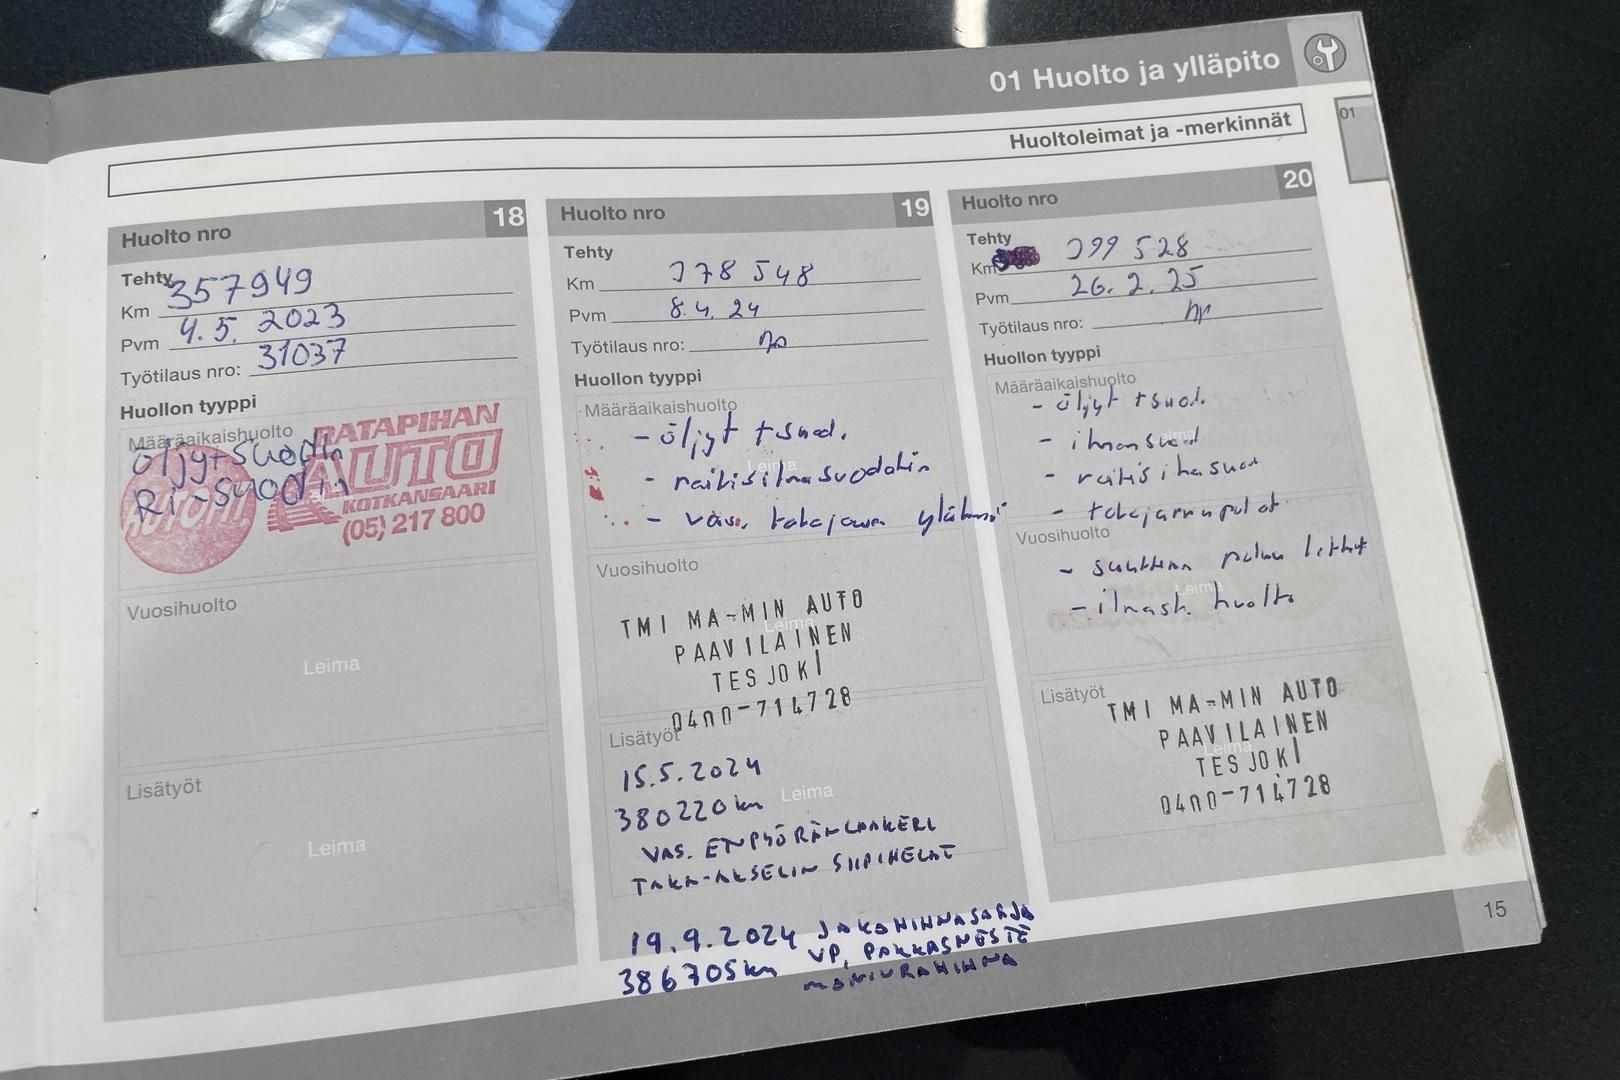 01 Huolto ja ylläpito
01
Huoltoleimat ja -merkinnät
Huolto nro 18
Tehty
Km 357949
Pvm 4.5. 2023
Työtilaus nro: 31037
Huollon tyyppi
Määräaikaishuolto
öljy+suodin
Ri-suodin
AUTOFIT
RATAPIHAN
AUTO
KOTKANSAARI
(05) 217 800
Vuosihuolto
Leima
Lisätyöt
Leima
Huolto nro 19
Tehty
Km 378 548
Pvm 8.4. 24
Työtilaus nro:
Huollon tyyppi
Määräaikaishuolto
- öljyt + suod.
Leima
- raitisilmasuodatin
- vas. takajousen
Vuosihuolto
TMI MA-MIN AUTO
Leima
PAAVILAINEN
TESJOKI
0400-714728
Lisätyöt
15.5.2024
380220km
Leima
VAS. ETUPYÖRÄNLAAKERI
TAKA-AKSELIN SIIPIHELAT
19.9.2024 JAKOHIHNASARJA
386705km VP, PAKKASNESTE
MONIURAHIHNA
Huolto nro 20
Tehty
Km 399 528
Pvm 26.2.25
Työtilaus nro:
Huollon tyyppi
Määräaikaishuolto
- öljyt + suod.
- ilmansuod
Leima
- raitisilmasuod
- takajarrupalat
Vuosihuolto
- suuttimien paluu letkut
Leima
- ilmast. huolto
Lisätyöt
TMI MA-MIN AUTO
PAAVILAINEN
Leima
TESJOKI
0400-714728
15